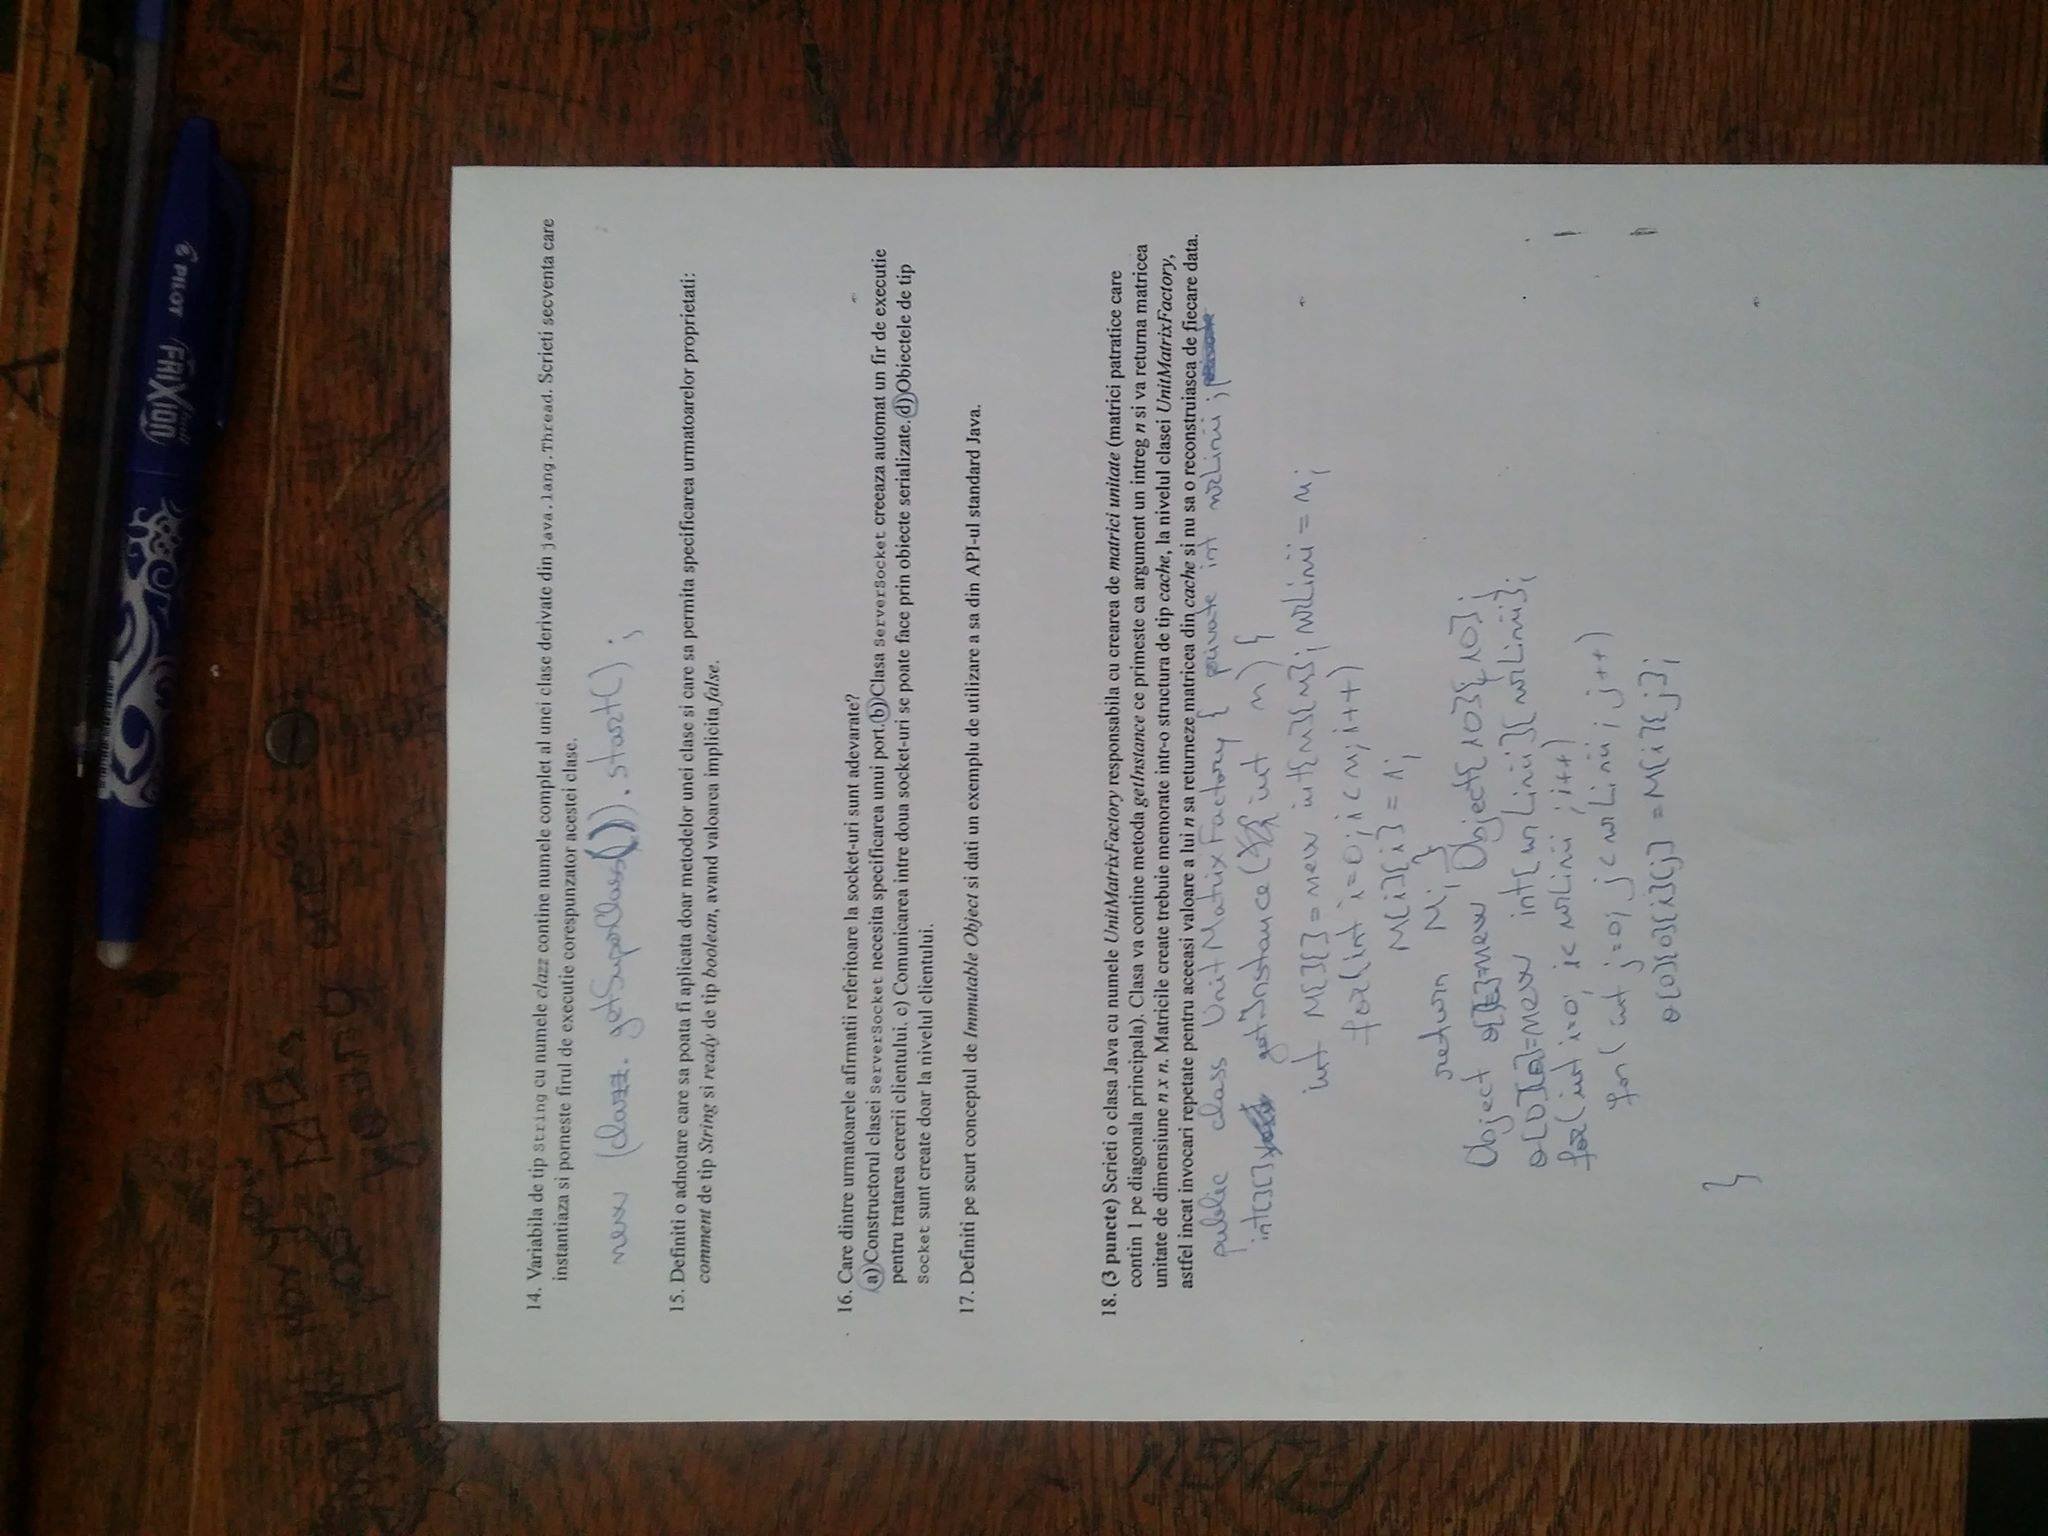 A
PILOT
FRIXION
may you
pass
young one
14. Variabila de tip String cu numele clazz contine numele complet al unei clase derivate din java.lang.Thread. Scrieti secventa care
instantiaza si porneste firul de executie corespunzator acestei clase.
new (clazz.getSuperClass()).start();
15. Definiti o adnotare care sa poata fi aplicata doar metodelor unei clase si care sa permita specificarea urmatoarelor proprietati:
comment de tip String si ready de tip boolean, avand valoarea implicita false.
16. Care dintre urmatoarele afirmatii referitoare la socket-uri sunt adevarate?
a) Constructorul clasei ServerSocket necesita specificarea unui port. b) Clasa ServerSocket creeaza automat un fir de executie
pentru tratarea cererii clientului. c) Comunicarea intre doua socket-uri se poate face prin obiecte serializate. d) Obiectele de tip
Socket sunt create doar la nivelul clientului.
17. Definiti pe scurt conceptul de Immutable Object si dati un exemplu de utilizare a sa din API-ul standard Java.
18. (3 puncte) Scrieti o clasa Java cu numele UnitMatrixFactory responsabila cu crearea de matrici unitate (matrici patratice care
contin 1 pe diagonala principala). Clasa va contine metoda getInstance ce primeste ca argument un intreg n si va returna matricea
unitate de dimensiune n x n. Matricile create trebuie memorate intr-o structura de tip cache, la nivelul clasei UnitMatrixFactory,
astfel incat invocari repetate pentru aceeasi valoare a lui n sa returneze matricea din cache si nu sa o reconstruiasca de fiecare data.
public class UnitMatrixFactory { private int nrLinii;
int[][] getInstance(int n) {
int M[][] = new int[n][n]; nrLinii = n;
for(int i=0; i<n; i++)
M[i][i] = 1;
return M; }
Object o[][]=new Object[10][10];
o[0][0]=new int[nrLinii][nrLinii];
for(int i=0; i<nrLinii; i++)
for(int j=0; j<nrLinii; j++)
o[0][0][i][j] = M[i][j];
}